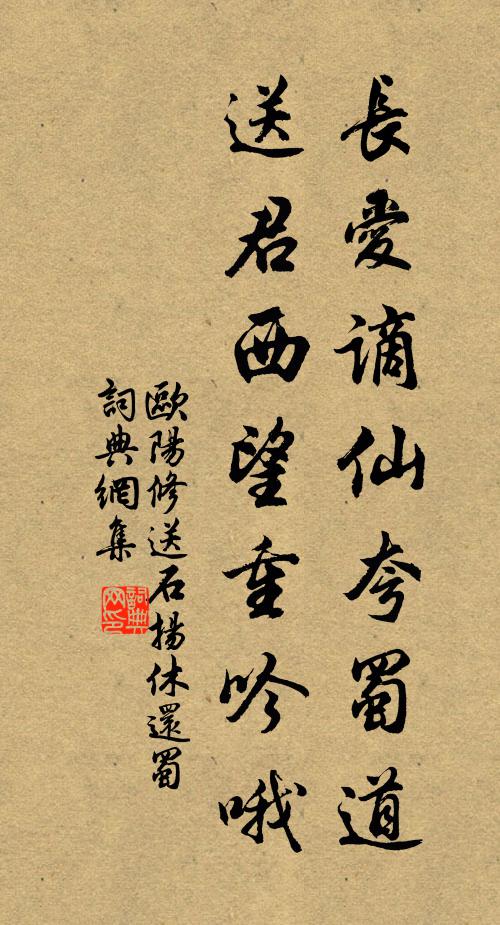 長愛謫仙夸蜀道
送君西望重吟哦
歐陽修送石揚休還蜀
詞典網集
詞典
网印